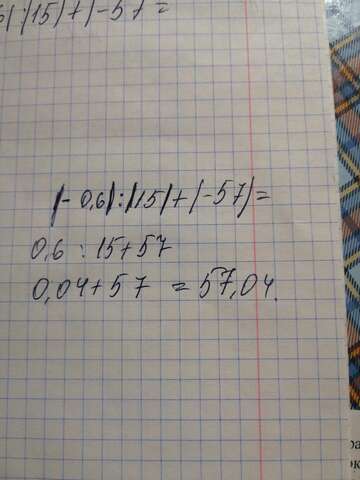 |:|15|+|-57|=
|-0,6|:|15|+|-57|=
0,6 : 15+57
0,04+57 = 57,04.